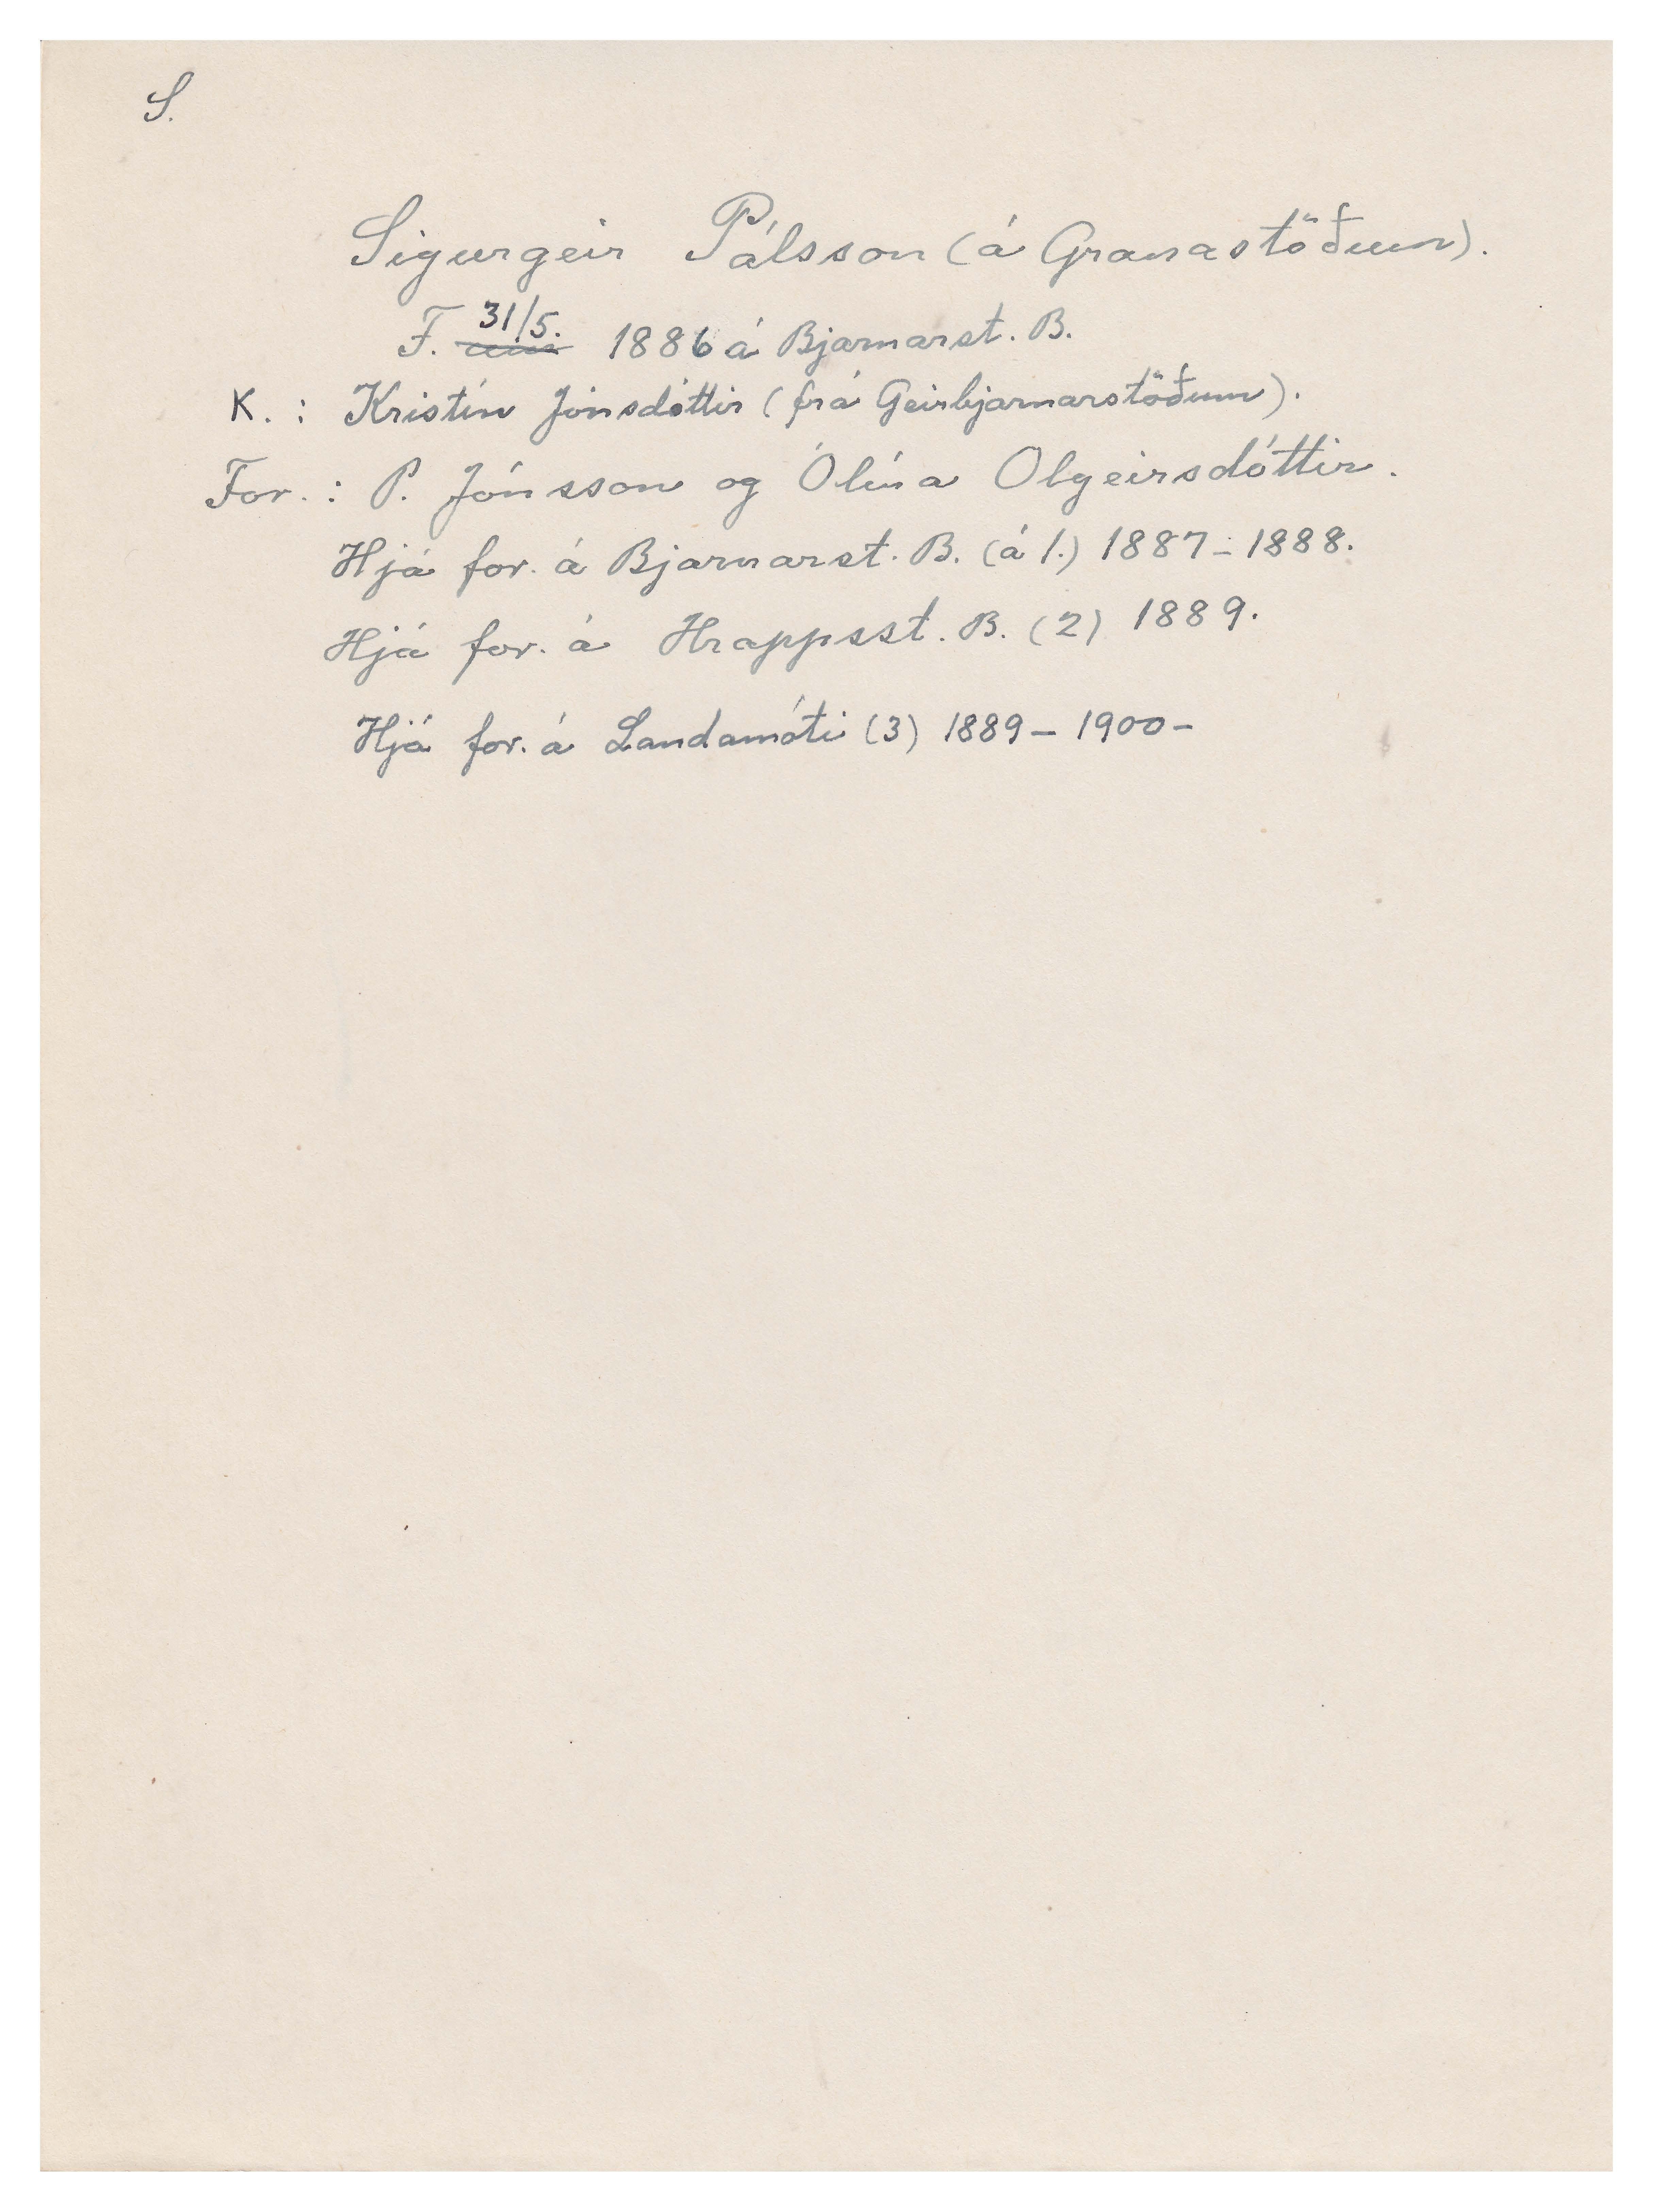 S.
Sigurgeir Pálsson (á Granastöðum).
F. 31/5. 1886 á Bjarnarst. B.
K. : Kristín Jónsdóttir (frá Geirbjarnarstöðum).
For. : P. Jónsson og Ólína Olgeirsdóttir.
Hjá for. á Bjarnarst. B. (á 1.) 1887-1888.
Hjá for. á Hrappsst. B. (2) 1889.
Hjá for. á Landamóti (3) 1889-1900-